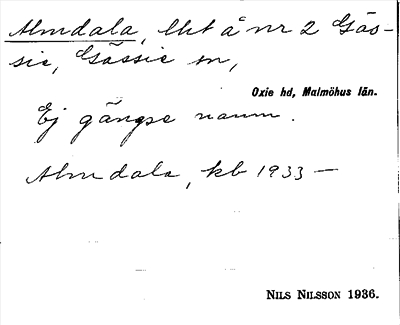 Almdala, lht å nr 2 Gäs-
sie, Gässie sn,
Oxie hd, Malmöhus län.
Ej gängse namn.
Almdala, kb 1933 —
NILS NILSSON 1936.